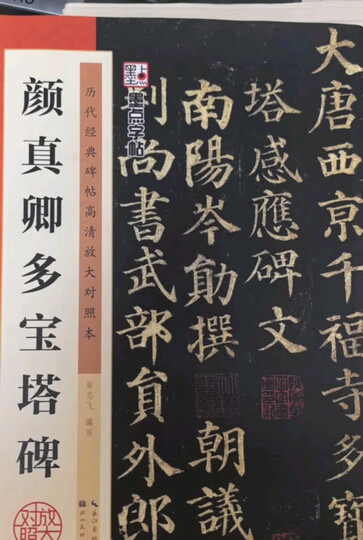 颜真卿多宝塔碑
历代经典碑帖高清放大对照本
编写
放大
对照
墨点
墨点字帖
大唐西京千福寺多寶
塔感應碑文
南陽岑勛撰
朝議
判尚書武部員外郎